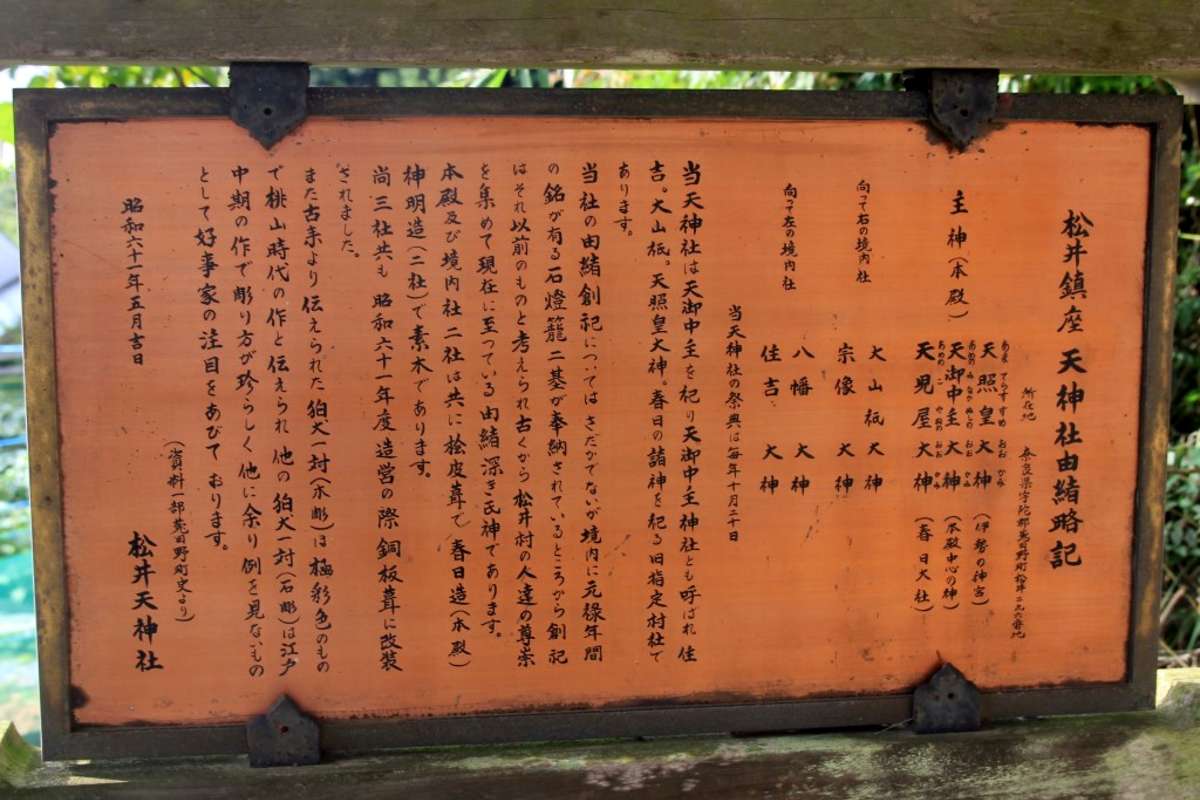 松井鎮座 天神社由緒略記
所在地 奈良県宇陀郡菟田野町松井二九六番地
主神(本殿)
天照皇大神(伊勢の神宮)
あま てらす すめ おお かみ
天御中主大神(本殿中心の神)
あめの み なか ぬしの おお かみ
天児屋大神(春日大社)
あめの こ やねの おお かみ
向って右の境内社
大山祇大神
宗像大神
向って左の境内社
八幡大神
住吉大神
当天神社の祭典は毎年十月二十日
当天神社は天御中主を祀り天御中主神社とも呼ばれ住
吉。大山祇。天照皇大神。春日の諸神を祀る旧指定村社で
あります。
当社の由緒創祀についてはさだかでないが境内に元禄年間
の銘が有る石燈籠二基が奉納されているところから創祀
はそれ以前のものと考えられ古くから松井村の人達の尊崇
を集めて現在に至っている由緒深き氏神であります。
本殿及び境内社二社は共に桧皮葺で春日造(本殿)
神明造(二社)で素木であります。
尚三社共も昭和六十一年度造営の際銅板葺に改装
されました。
また古来より伝えられた狛犬一対(木彫)は極彩色のもの
で桃山時代の作と伝えられ他の狛犬一対(石彫)は江戸
中期の作で彫り方が珍らしく他に余り例を見ないもの
として好事家の注目をあびております。
(資料一部菟田野町史より)
昭和六十一年五月吉日
松井天神社